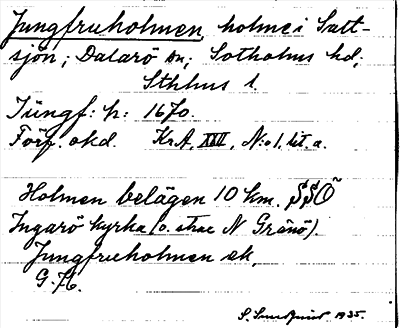 Jungfruholmen, holme i Salt-
sjön; Dalarö sn; Sotholms hd;
Sthlms l.
Jüngf: h: 1670.
Förf. okd. KrA, XXVI, N:o 1. lit. a.
Holmen belägen 10 km. SSÖ
Ingarö kyrka (o. strax N Grönö).
Jungfruholmen ek.
G.K.
1935.